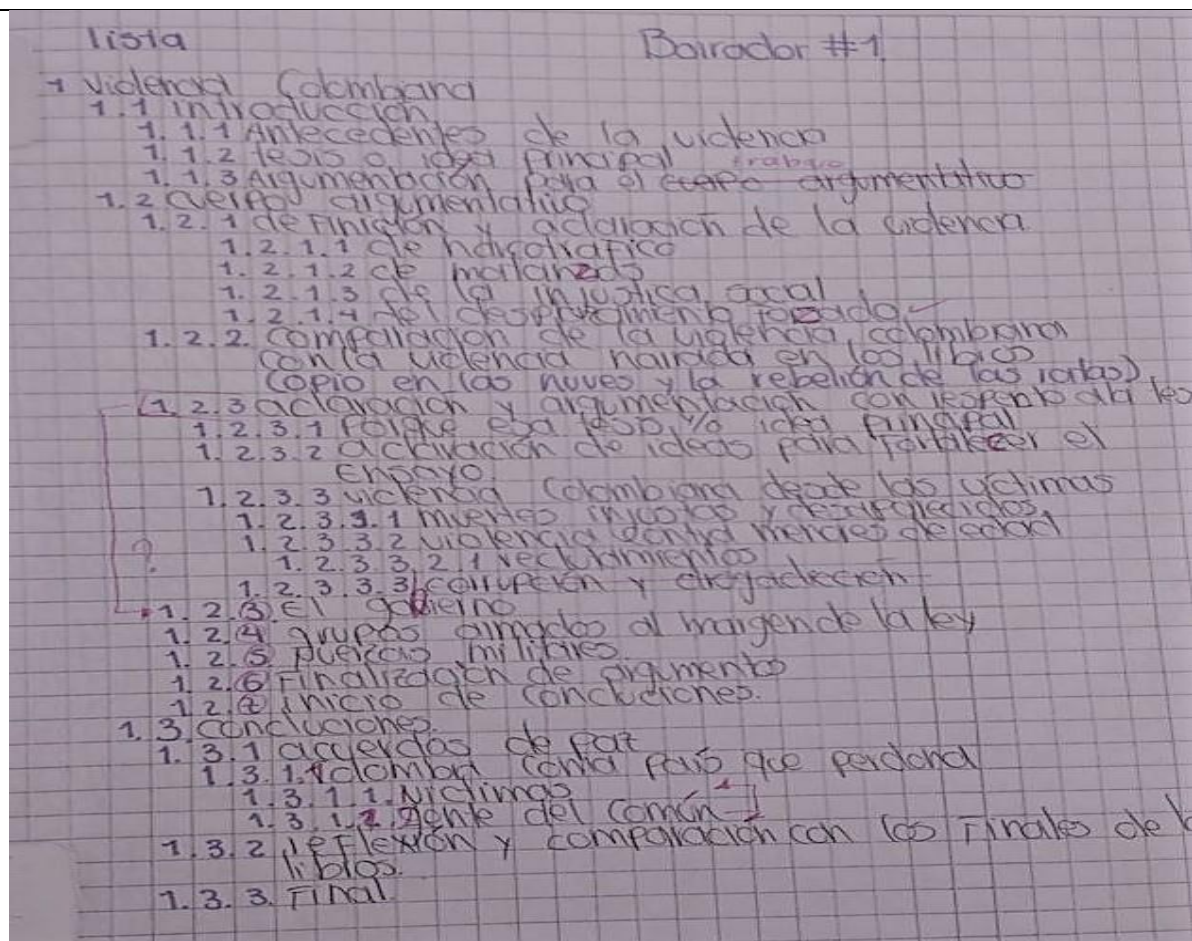 lista Borrador #1
1 Violencia Colombiana
1.1 introducción
1.1.1 Antecedentes de la violencia
1.1.2 tesis o idea principal
1.1.3 Argumentación para el trabajo argumentativo
1.2 cuerpo argumentativo
1.2.1 definición y aclaración de la violencia
1.2.1.1 de narcotrafico
1.2.1.2 de matanzas
1.2.1.3 de la injustica social
1.2.1.4 del desplazamiento forzado
1.2.2 comparación de la violencia colombiana
con la violencia narrada en los libros
(opio en las nuves y la rebelión de las ratas)
(1.2.3 aclaración y argumentación con respento a la tes
1.2.3.1 Porque esa tesis y/o idea principal
1.2.3.2 aclaración de ideas para fortalecer el
ensayo.
1.2.3.3 violencia Colombiana desde las victimas
1.2.3.3.1 muertes injustas y
1.2.3.3.2 violencia contra menores de edad
1.2.3.3.2.1 reclutamientos
1.2.3.3.3 corrupción y drogadicción
?
1.2.3 El gobierno
1.2.4 grupos armados al margen de la ley
1.2.5 fuerzas militares
1.2.6 Finalización de argumentos
1.2.7 inicio de concluciones.
1.3 concluciones.
1.3.1 acuerdos de paz
1.3.1.1 Colombia como país que perdona
1.3.1.1. Victimas
1.3.1.2. gente del común
1.3.2 reflexión y comparación con los Finales de l
libros.
1.3.3. Final.